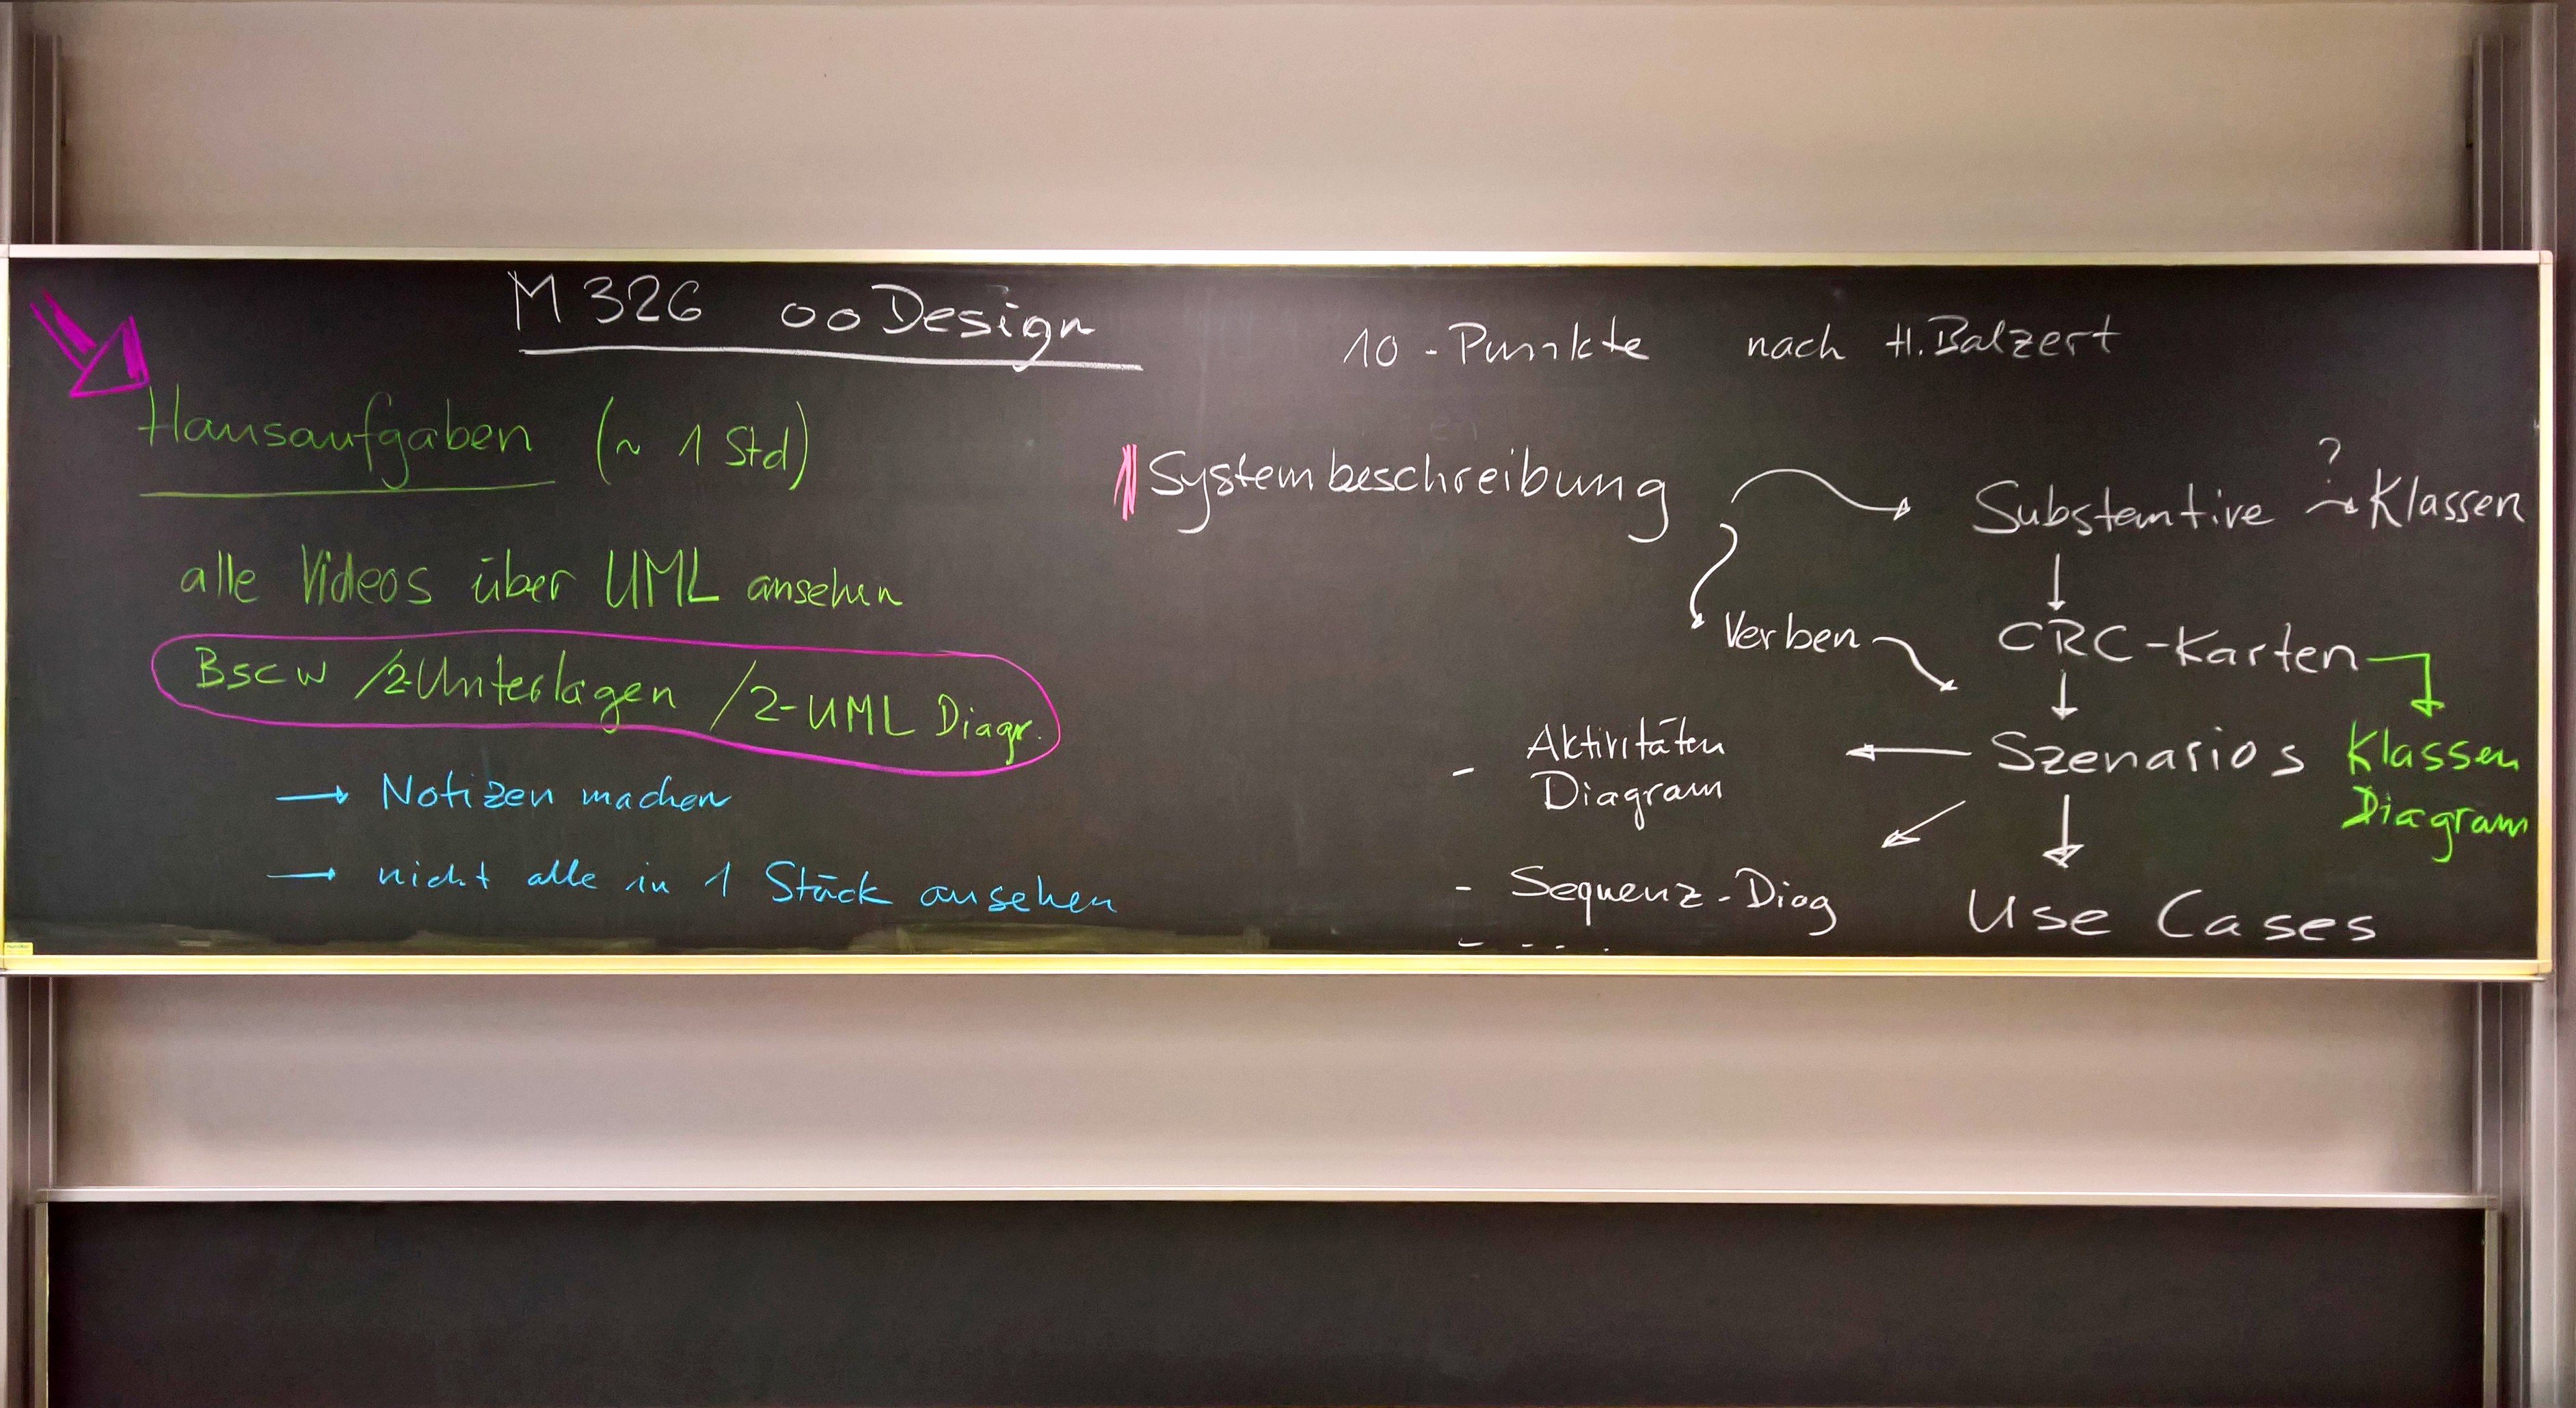 M 326 ooDesign
Hausaufgaben (~ 1 Std)
alle Videos über UML ansehen
Bscw /2-Unterlagen /2-UML Diagr.
→ Notizen machen
→ nicht alle in 1 Stück ansehen
10-Punkte nach H. Balzert
Systembeschreibung
Substantive → Klassen
?
Verben
CRC-Karten
Szenarios
Klassen
Diagram
- Aktivitäten
Diagram
- Sequenz-Diag
Use Cases
- - - .